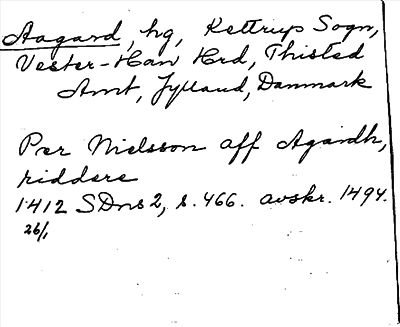 Aagard, hg, Kettrup Sogn,
Vester-Han Hrd, Thisted
Amt, Jylland, Danmark
Per Nielsson aff Agardh,
riddere
1412 SDns 2, s. 466. avskr. 1494.
26/1